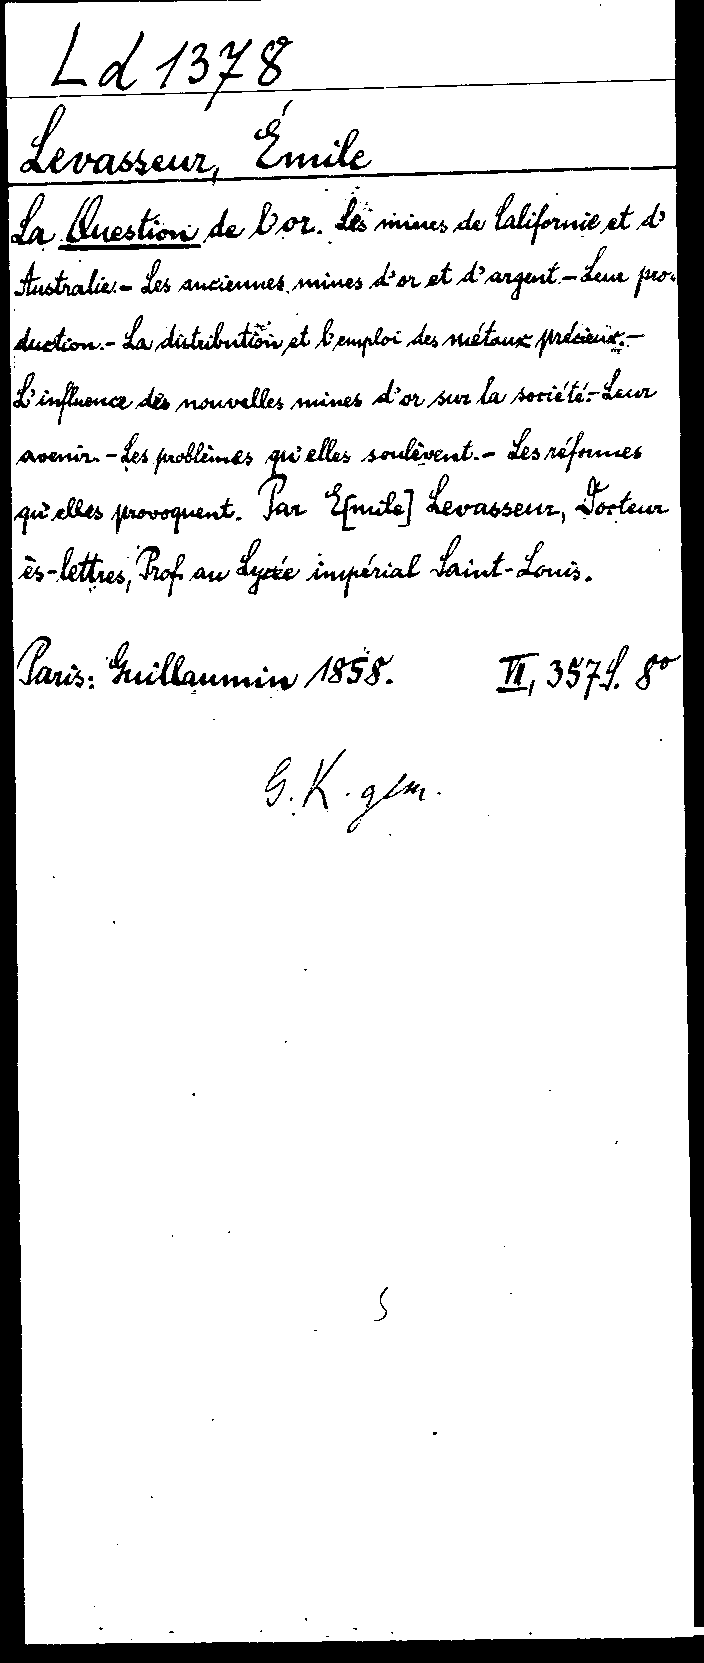 Ld 1378
Levasseur, Émile
La Question de l'or. Les mines de Californie et d'
Australie.- Les anciennes mines d'or et d'argent.- Leur pro-
duction.- La distribution et l'emploi des métaux précieux.-
L'influence des nouvelles mines d'or sur la société.- Leur
avenir.- Les problèmes qu'elles soulèvent.- Les réformes
qu'elles provoquent. Par E[mile] Levasseur, Docteur
ès-lettres, Prof. au Lycée impérial Saint-Louis.
Paris: Guillaumin 1858. VI, 357 S. 8°
G. K. gem.